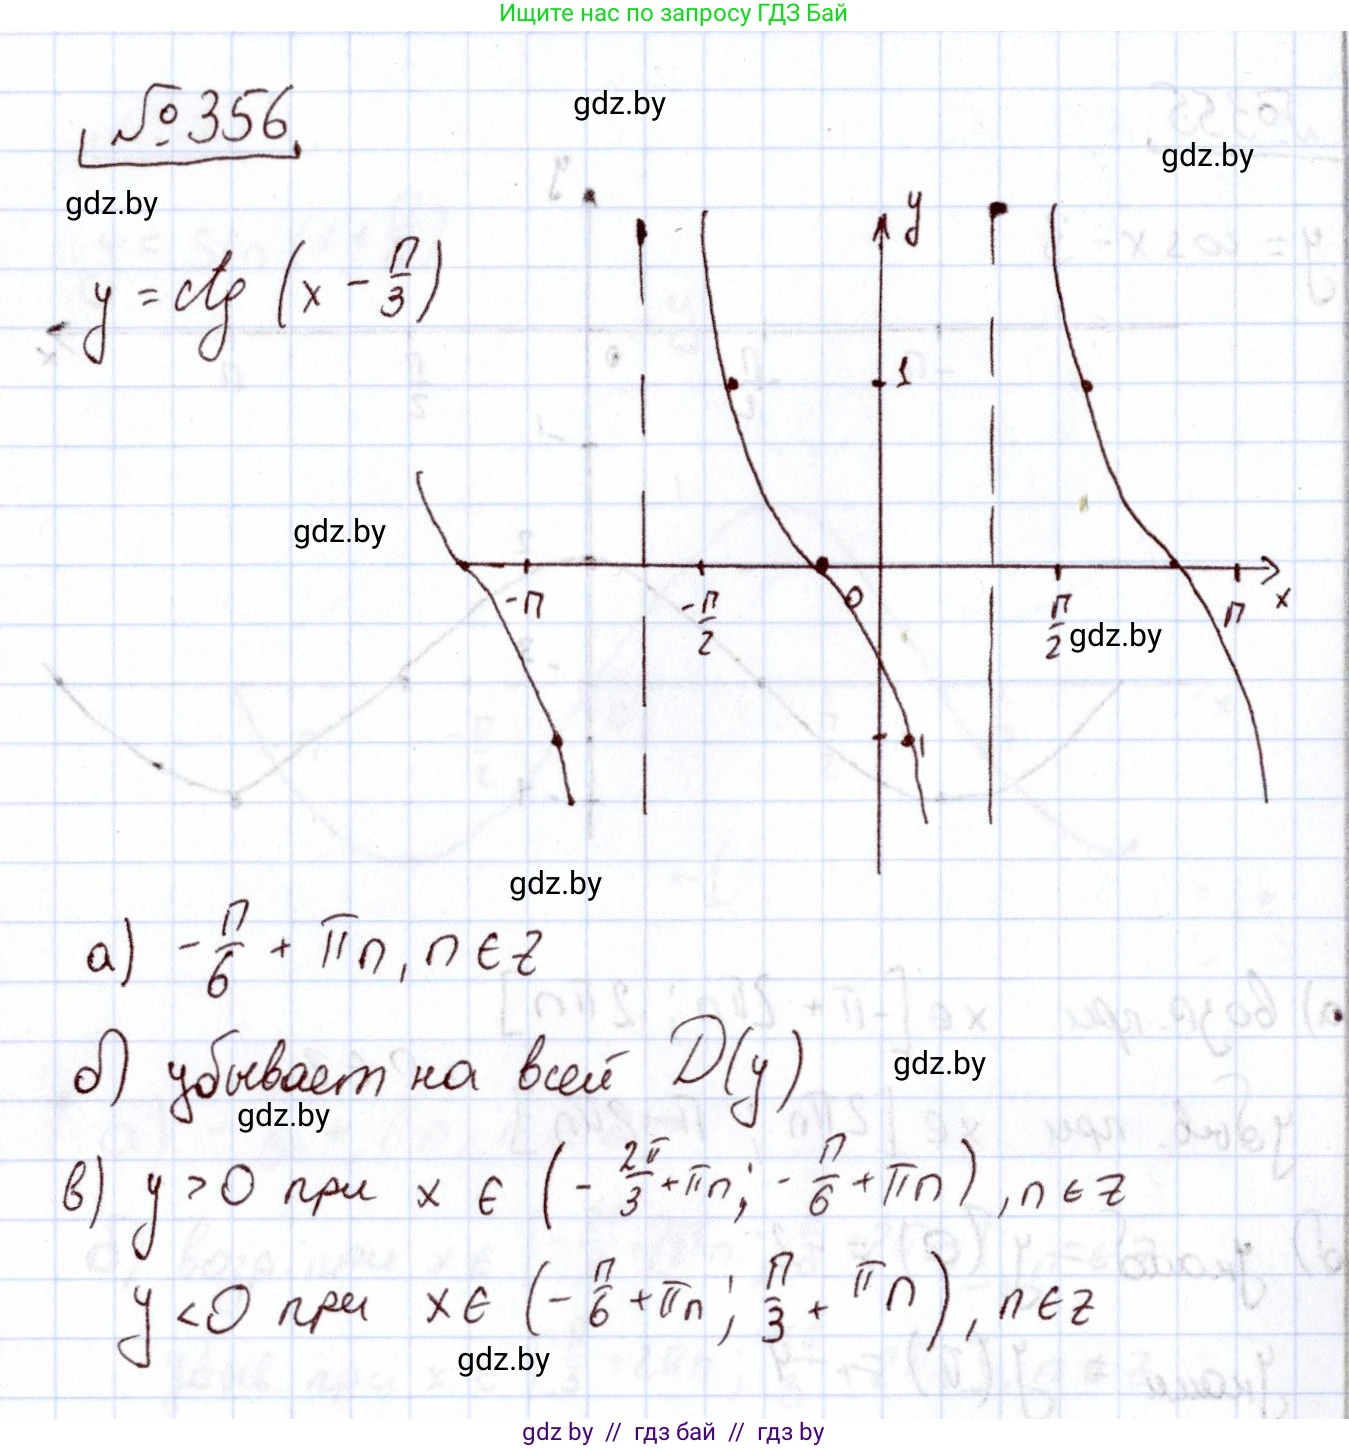 Ищите нас по запросу ГДЗ Бай
№356
gdz.by
gdz.by
gdz.by
y = ctg (x - π/3)
y
1
gdz.by
-π
-π/2
0
π/2
gdz.by
π
x
-1
gdz.by
а) -π/6 + πn, n ∈ Z
б) убывает на всей D(y)
gdz.by
gdz.by
в) y > 0 при x ∈ (-2π/3 + πn; -π/6 + πn), n ∈ Z
y < 0 при x ∈ (-π/6 + πn; π/3 + πn), n ∈ Z
gdz.by
gdz.by // гдз бай // гдз by